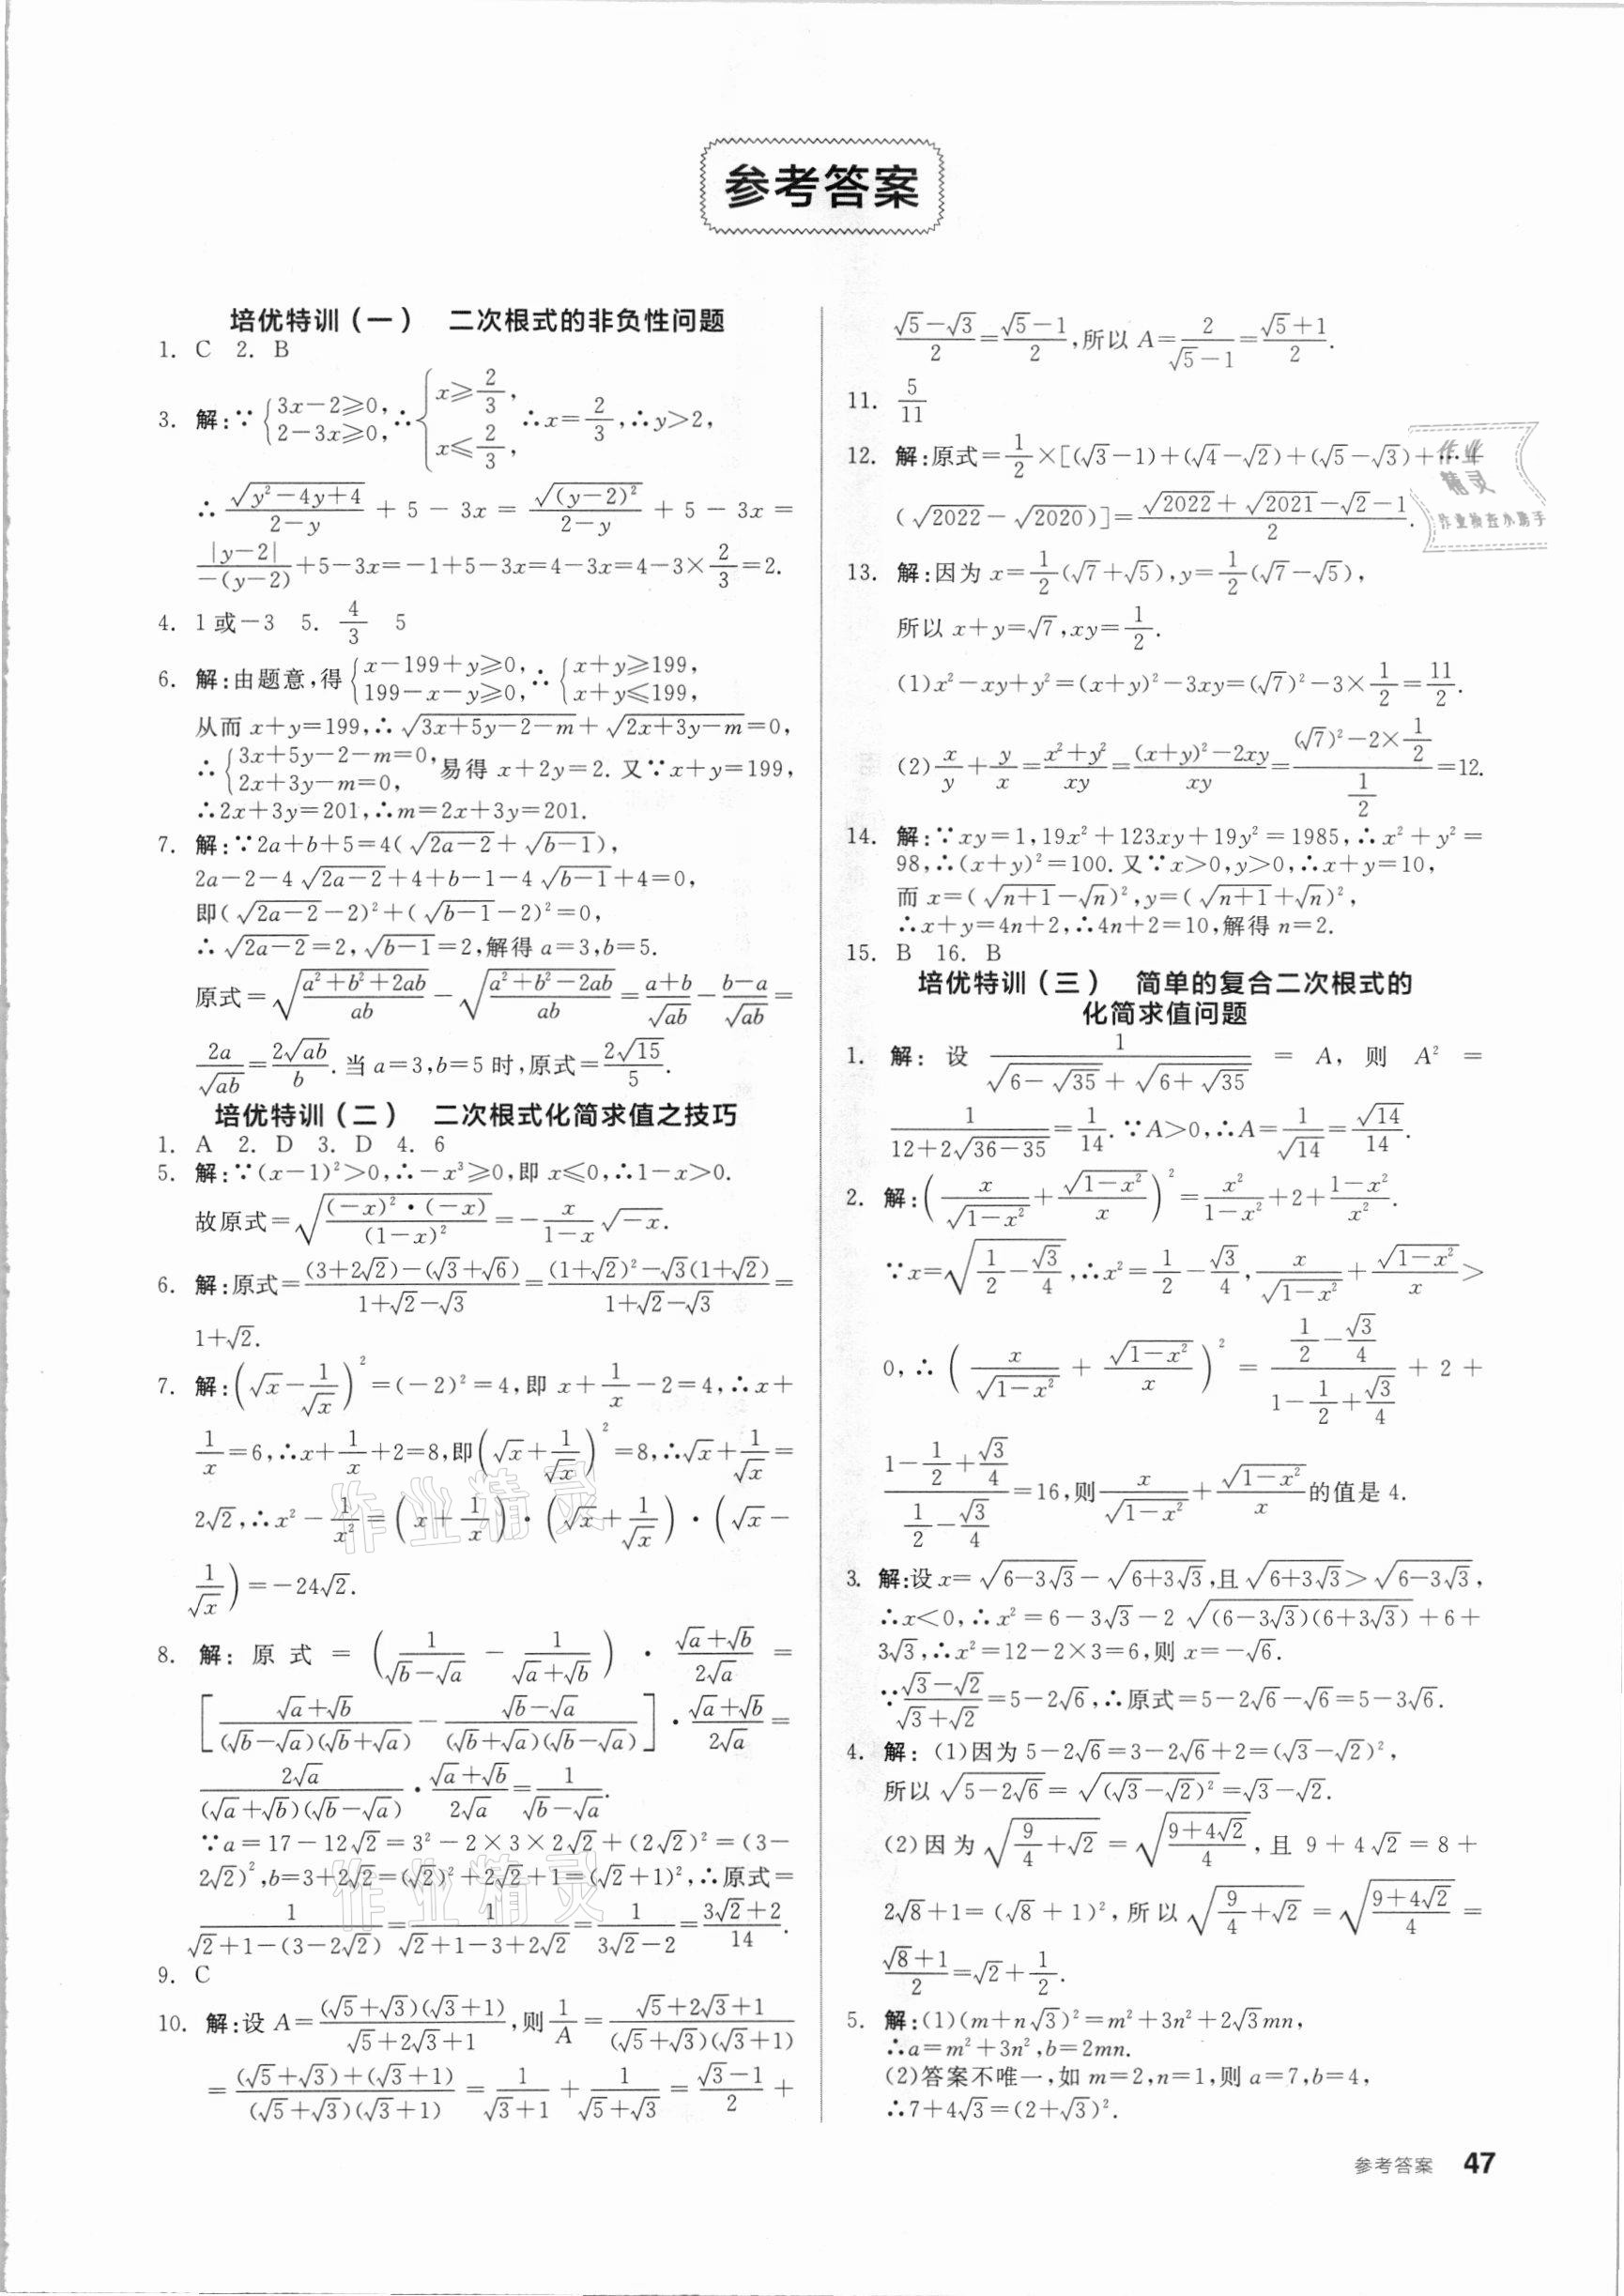 参考答案
培优特训(一) 二次根式的非负性问题
1. C 2. B
3. 解:∵{3x-2≥0, 2-3x≥0, ∴{x≥2/3, x≤2/3, ∴x=2/3,∴y>2,
∴ √(y²-4y+4)/(2-y) + 5 - 3x = √((y-2)²)/(2-y) + 5 - 3x =
|y-2|/(-(y-2))+5-3x=-1+5-3x=4-3x=4-3×2/3=2.
4. 1或-3 5. 4/3 5
6. 解:由题意,得{x-199+y≥0, 199-x-y≥0, ∴{x+y≥199, x+y≤199,
从而 x+y=199,∴√(3x+5y-2-m)+√(2x+3y-m)=0,
∴{3x+5y-2-m=0, 2x+3y-m=0, 易得 x+2y=2. 又∵x+y=199,
∴2x+3y=201,∴m=2x+3y=201.
7. 解:∵2a+b+5=4(√(2a-2)+√(b-1)),
2a-2-4√(2a-2)+4+b-1-4√(b-1)+4=0,
即(√(2a-2)-2)²+(√(b-1)-2)²=0,
∴√(2a-2)=2,√(b-1)=2,解得 a=3,b=5.
原式=√((a²+b²+2ab)/ab)-√((a²+b²-2ab)/ab)=(a+b)/√(ab)-(b-a)/√(ab)=
2a/√(ab)=2√(ab)/b. 当 a=3,b=5 时,原式=2√15/5.
培优特训(二) 二次根式化简求值之技巧
1. A 2. D 3. D 4. 6
5. 解:∵(x-1)²>0,∴-x³≥0,即 x≤0,∴1-x>0.
故原式=√((-x)²·(-x)/(1-x)²)=-x/(1-x)√(-x).
6. 解:原式=((3+2√2)-(√3+√6))/(1+√2-√3)=((1+√2)²-√3(1+√2))/(1+√2-√3)=
1+√2.
7. 解:(√x-1/√x)²=(-2)²=4,即 x+1/x-2=4,∴x+
1/x=6,∴x+1/x+2=8,即(√x+1/√x)²=8,∴√x+1/√x=
2√2,∴x²-1/x²=(x+1/x)·(√x+1/√x)·(√x-
1/√x)=-24√2.
8. 解:原式=(1/(√b-√a)-1/(√a+√b))·(√a+√b)/(2√a)=
[(√a+√b)/((√b-√a)(√b+√a))-(√b-√a)/((√b+√a)(√b-√a))]·(√a+√b)/(2√a)=
2√a/((√a+√b)(√b-√a))·(√a+√b)/(2√a)=1/(√b-√a).
∵a=17-12√2=3²-2×3×2√2+(2√2)²=(3-
2√2)²,b=3+2√2=(√2)²+2√2+1=(√2+1)²,∴原式=
1/(√2+1-(3-2√2))=1/(√2+1-3+2√2)=1/(3√2-2)=(3√2+2)/14.
9. C
10. 解:设 A=(√5+√3)(√3+1)/(√5+2√3+1),则1/A=(√5+2√3+1)/((√5+√3)(√3+1))
=((√5+√3)+(√3+1))/((√5+√3)(√3+1))=1/(√3+1)+1/(√5+√3)=(√3-1)/2+
(√5-√3)/2=(√5-1)/2,所以 A=2/(√5-1)=(√5+1)/2.
11. 5/11
12. 解:原式=1/2×[(√3-1)+(√4-√2)+(√5-√3)+…+
(√2022-√2020)]=(√2022+√2021-√2-1)/2.
13. 解:因为 x=1/2(√7+√5),y=1/2(√7-√5),
所以 x+y=√7,xy=1/2.
(1)x²-xy+y²=(x+y)²-3xy=(√7)²-3×1/2=11/2.
(2)x/y+y/x=(x²+y²)/xy=((x+y)²-2xy)/xy=((√7)²-2×1/2)/(1/2)=12.
14. 解:∵xy=1,19x²+123xy+19y²=1985,∴x²+y²=
98,∴(x+y)²=100. 又∵x>0,y>0,∴x+y=10,
而 x=(√(n+1)-√n)²,y=(√(n+1)+√n)²,
∴x+y=4n+2,∴4n+2=10,解得 n=2.
15. B 16. B
培优特训(三) 简单的复合二次根式的
化简求值问题
1. 解:设 1/(√(6-√35)+√(6+√35)) = A, 则 A² =
1/(12+2√(36-35))=1/14. ∵A>0,∴A=1/√14=√14/14.
2. 解:(x/√(1-x²)+√(1-x²)/x)²=x²/(1-x²)+2+(1-x²)/x².
∵x=√(1/2-√3/4),∴x²=1/2-√3/4,x/√(1-x²)+√(1-x²)/x>
0,∴(x/√(1-x²)+√(1-x²)/x)²=(1/2-√3/4)/(1-1/2+√3/4)+2+
(1-1/2+√3/4)/(1/2-√3/4)=16,则x/√(1-x²)+√(1-x²)/x的值是 4.
3. 解:设 x=√(6-3√3)-√(6+3√3),且√(6+3√3)>√(6-3√3),
∴x<0,∴x²=6-3√3-2√((6-3√3)(6+3√3))+6+
3√3,∴x²=12-2×3=6,则 x=-√6.
∵(√3-√2)/(√3+√2)=5-2√6,∴原式=5-2√6-√6=5-3√6.
4. 解:(1)因为 5-2√6=3-2√6+2=(√3-√2)²,
所以√(5-2√6)=√((√3-√2)²)=√3-√2.
(2)因为√(9/4+√2)=√((9+4√2)/4),且 9+4√2=8+
2√8+1=(√8+1)²,所以√(9/4+√2)=√((9+4√2)/4)=
(√8+1)/2=√2+1/2.
5. 解:(1)(m+n√3)²=m²+3n²+2√3mn,
∴a=m²+3n²,b=2mn.
(2)答案不唯一,如 m=2,n=1,则 a=7,b=4,
∴7+4√3=(2+√3)².
参考答案 47
作业
精灵
作业检查小助手
作业精灵
作业精灵